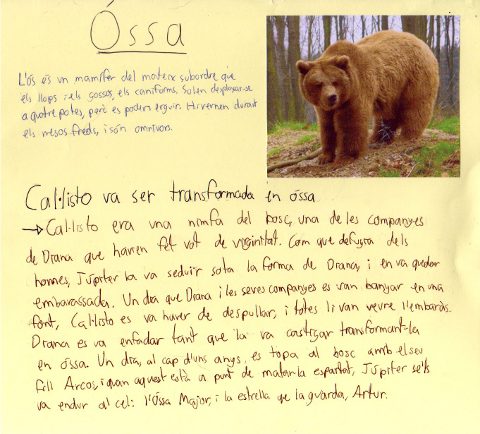 Óssa
L'ós és un mamífer del mateix subordre que
els llops i els gossos, els caniforms. Solen desplaçar-se
a quatre potes, però es poden erguir. Hivernen durant
els mesos freds, i són omnívors.
Cal·listo va ser transformada en óssa
→ Cal·listo era una nimfa del bosc, una de les companyes
de Diana que havien fet vot de virginitat. Com que defugia dels
homes, Júpiter la va seduir sota la forma de Diana, i en va quedar
embarassada. Un dia que Diana i les seves companyes es van banyar en una
font, Cal·listo es va haver de despullar, i totes li van veure l'embaràs.
Diana es va enfadar tant que la va castigar transformant-la
en óssa. Un dia, al cap d'uns anys, es topa al bosc amb el seu
fill Arcos, i quan aquest està a punt de matar-la espantat, Júpiter se'ls
va endur al cel: l'Óssa Major, i la estrella que la guarda, Artur.